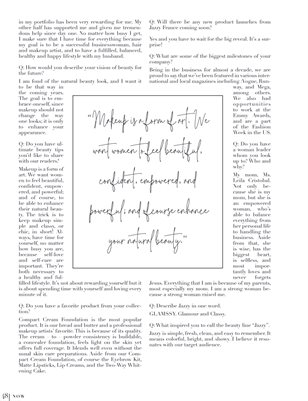 in my portfolio has been very rewarding for me. My
other half has supported me and gives me tremen-
dous help since day one. No matter how busy I get,
I make sure that I have time for everything because
my goal is to be a successful businesswoman, hair
and makeup artist, and to have a fulfilled, balanced,
healthy and happy lifestyle with my husband.
Q: How would you describe your vision of beauty for
the future?
I am fond of the natural beauty look, and I want it
to be that way in
the coming years.
The goal is to em-
brace oneself, since
makeup should not
change the way
one looks; it is only
to enhance your
appearance.
Q: Do you have ul-
timate beauty tips
you'd like to share
with our readers?
Makeup is a form of
art. We want wom-
en to feel beautiful,
confident, empow-
ered, and powerful;
and of course, to
be able to enhance
their natural beau-
ty. The trick is to
keep makeup sim-
ple and classy, or
chic, in short! Al-
ways, have time for
yourself, no matter
how busy you are,
because self-love
and self-care are
important. They're
both necessary to
a healthy and ful-
filled lifestyle. It's not about rewarding yourself but it
is about spending time with yourself and loving every
minute of it.
Q: Do you have a favorite product from your collec-
tion?
Compact Cream Foundation is the most popular
product. It is our bread and butter and a professional
makeup artists' favorite. This is because of its quality.
The cream to powder consistency is buildable,
a concealer foundation, feels light on the skin yet
offers full coverage. It blends well even without the
usual skin care preparations. Aside from our Com-
pact Cream Foundation, of course the Eyebrow Kit,
Matte Lipsticks, Lip Creams, and the Two-Way Whit-
ening Cake.
"Makeup is a form of art. We
want women to feel beautiful,
confident, empowered, and
powerful; and of course enhance
your natural beauty."
Q: Will there be any new product launches from
Jazzy France coming soon?
Yes and you have to wait for the big reveal. It's a sur-
prise!
Q: What are some of the biggest milestones of your
company?
Being in the business for almost a decade, we are
proud to say that we've been featured in various inter-
national and local magazines including Vogue, Run-
way, and Mega,
among others.
We also had
opportunities
to work at the
Emmy Awards,
and are a part
of the Fashion
Week in the US.
Q: Do you have
a woman leader
whom you look
up to? Who and
why?
My mom, Ms.
Leila Cristobal.
Not only be-
cause she is my
mom, but she is
an empowered
woman, who's
able to balance
everything from
her personal life
to handling the
business. Aside
from that, she
is wise, has the
biggest heart,
is selfless, and
most impor-
tantly loves and
never forgets
Jesus. Everything that I am is because of my parents,
most especially my mom. I am a strong woman be-
cause a strong woman raised me.
Q: Describe Jazzy in one word.
GLAMSSY. Glamour and Classy.
Q: What inspired you to call the beauty line "Jazzy"?
Jazzy is simple, fresh, clean, and easy to remember. It
means colorful, bright, and showy. I believe it reso-
nates with our target audience.